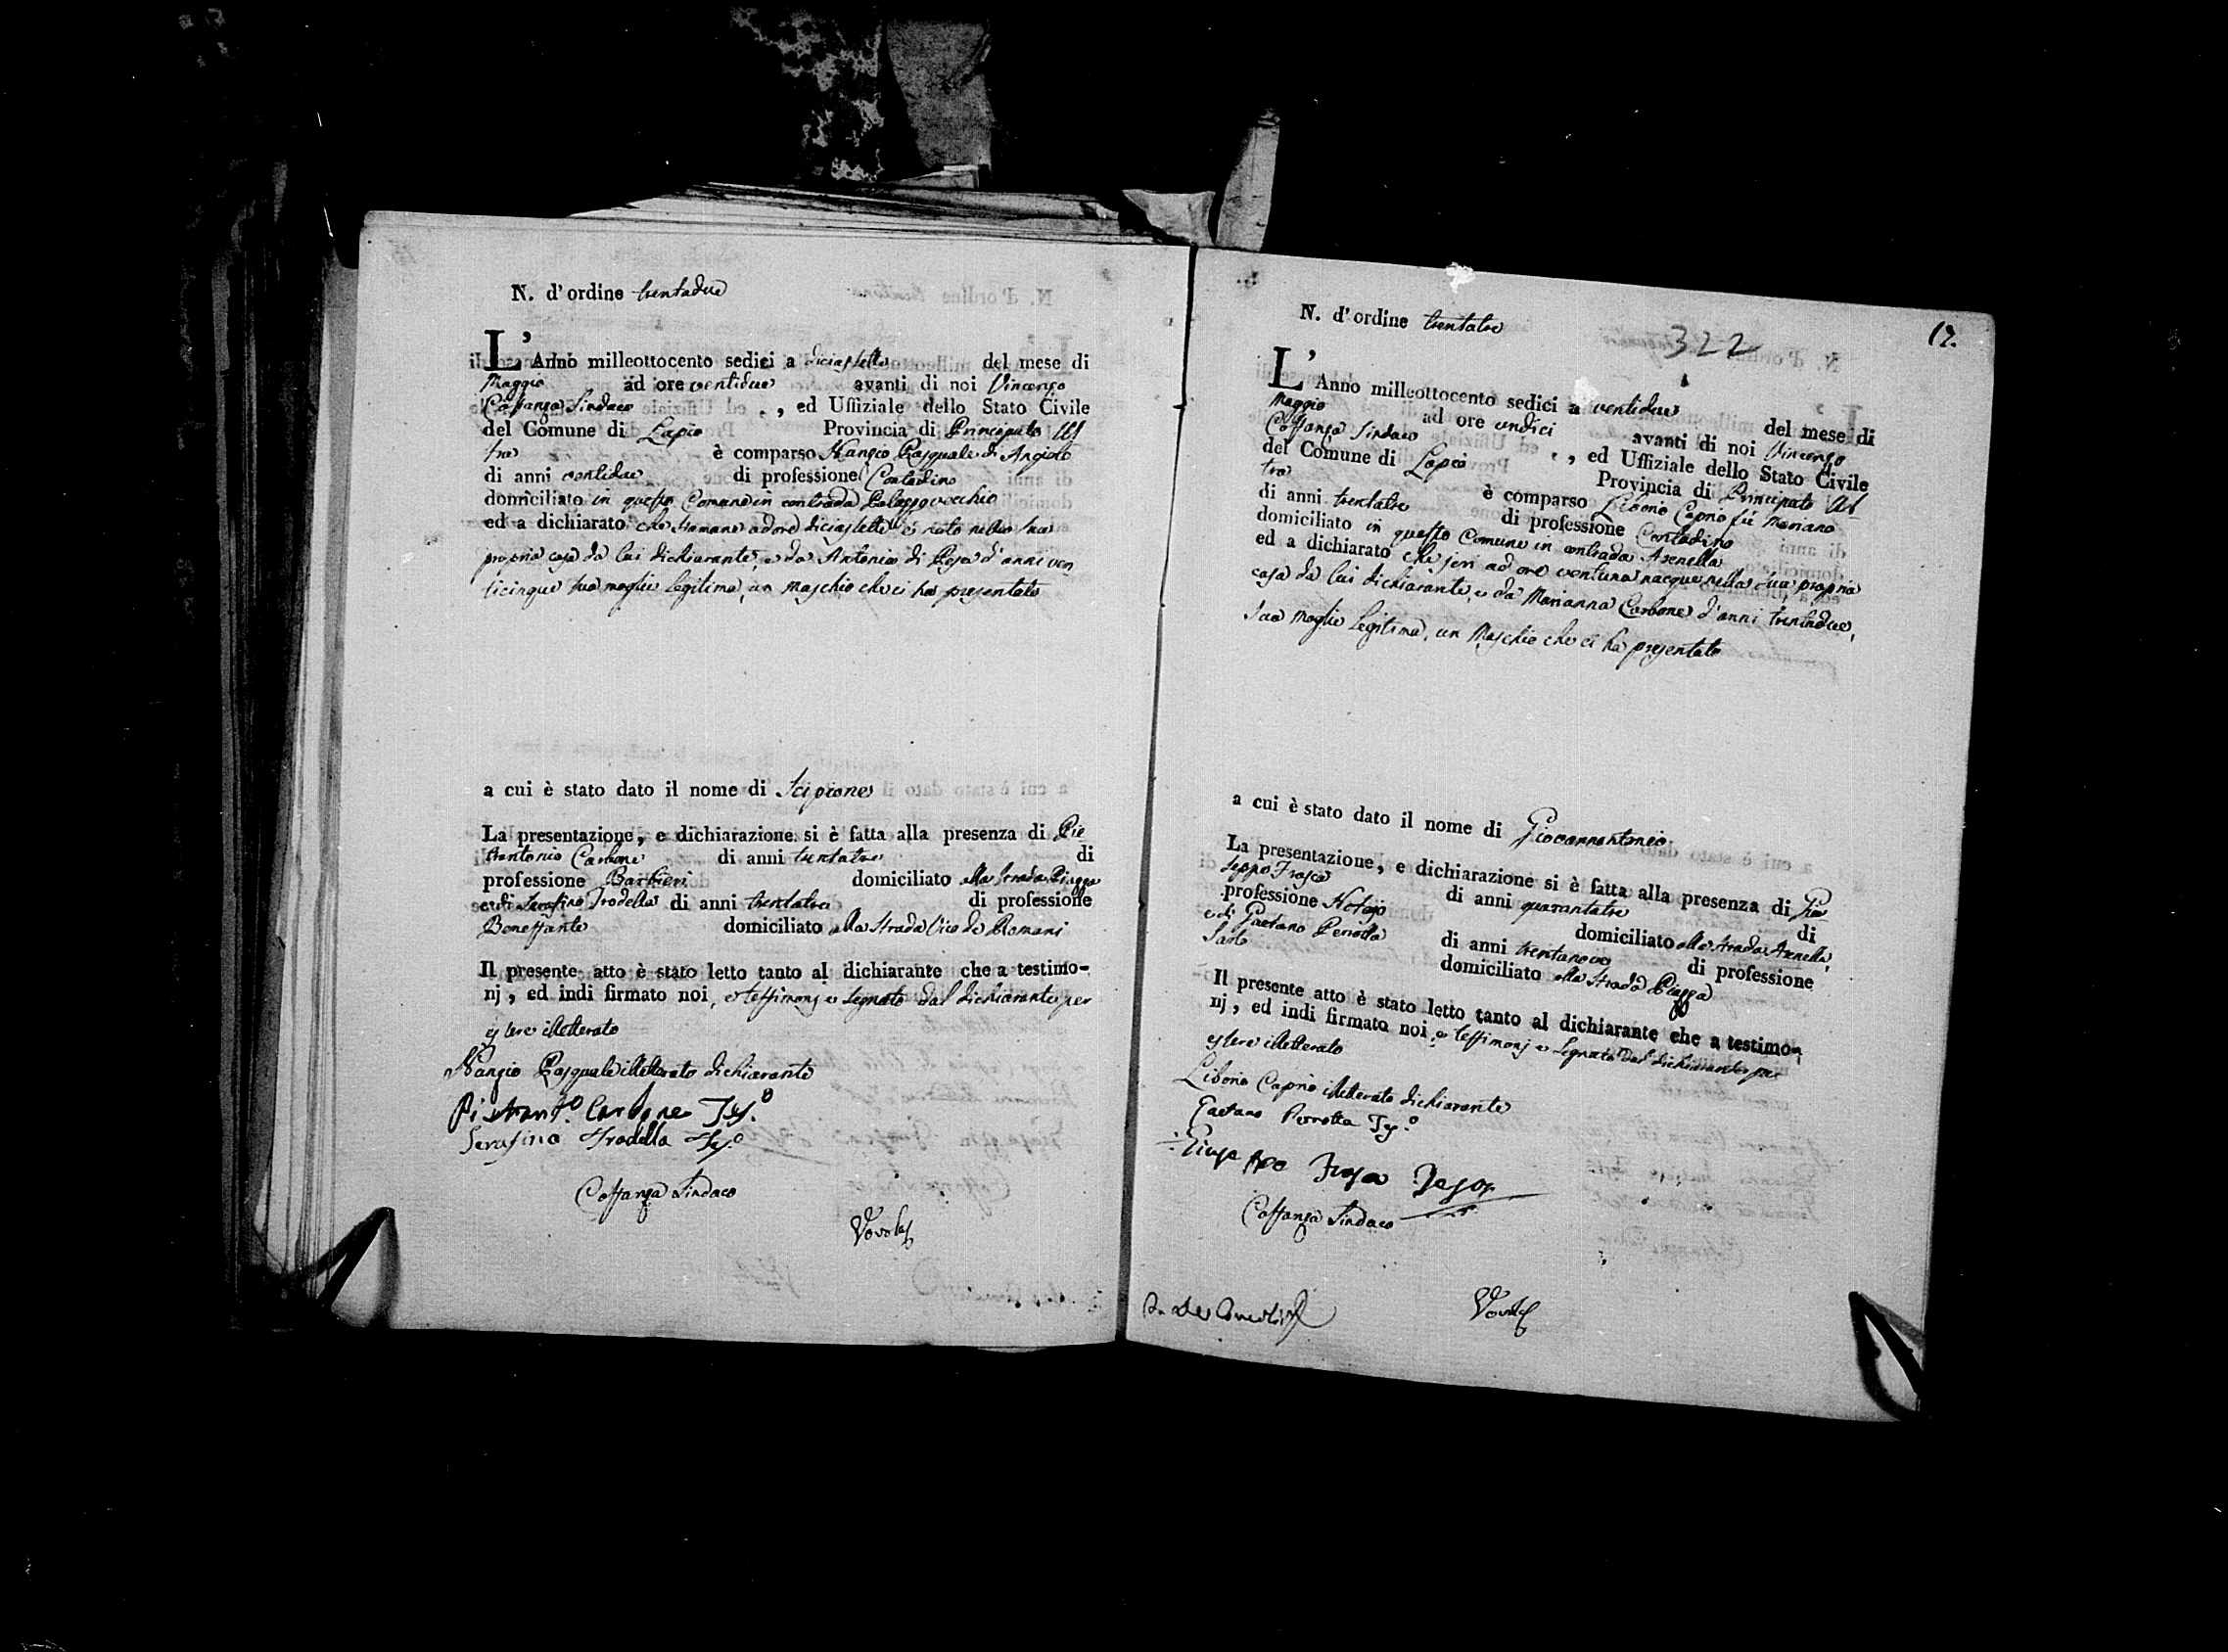 N. d'ordine trentadue
L'Anno milleottocento sedici a diciassette del mese di
Maggio ad ore ventidue avanti di noi Vincenzo
Costanza Sindaco , ed Uffiziale dello Stato Civile
del Comune di Lapio Provincia di Principato Ul
tra è comparso Nanzio Pasquale di Angiolo
di anni ventidue di professione Contadino
domiciliato in questo Comune in contrada Palazzovecchio
ed a dichiarato che stamane ad ore diciassette è nato nella sua
propria casa da lui dichiarante, e da Antonia di Rosa d'anni ven
ticinque sua moglie legitima, un Maschio che ci ha presentato
a cui è stato dato il nome di Scipione
La presentazione, e dichiarazione si è fatta alla presenza di Pie
trantonio Carbone di anni trentatre di
professione Barbieri domiciliato alla strada Piazza
e di Serafino Trodella di anni trentatre di professione
Benestante domiciliato alla strada Vico de Romani
Il presente atto è stato letto tanto al dichiarante che a testimo-
nj, ed indi firmato noi, e testimonj e segnato dal dichiarante per
essere illetterato
Nanzio Pasquale illetterato dichiarante
Pietrant.o Carbone Tes.o
Serafino Trodella Tes.o
Costanza Sindaco
322
12.
N. d'ordine trentatre
L'Anno milleottocento sedici a ventidue del mese di
Maggio ad ore undici avanti di noi Vincenzo
Costanza Sindaco , ed Uffiziale dello Stato Civile
del Comune di Lapio Provincia di Principato Ul
tra è comparso Liborio Caprio fù Mariano
di anni trentatre di professione Contadino
domiciliato in questo Comune in contrada Arenella
ed a dichiarato che jeri ad ore ventuna nacque nella sua propria
casa da lui dichiarante, e da Marianna Carbone d'anni trentadue,
sua moglie legitima, un Maschio che ci ha presentato
a cui è stato dato il nome di Giovannantonio
La presentazione, e dichiarazione si è fatta alla presenza di Giu
seppe Frasca di anni quarantatre di
professione Notajo domiciliato alla strada Arenella,
e di Gaetano Perrotta di anni trentanove di professione
Sarto domiciliato alla strada Piazza
Il presente atto è stato letto tanto al dichiarante che a testimo-
nj, ed indi firmato noi, e testimonj e segnato dal dichiarante per
essere illetterato
Liborio Caprio illetterato dichiarante
Gaetano Perrotta Tes.o
Costanza Sindaco